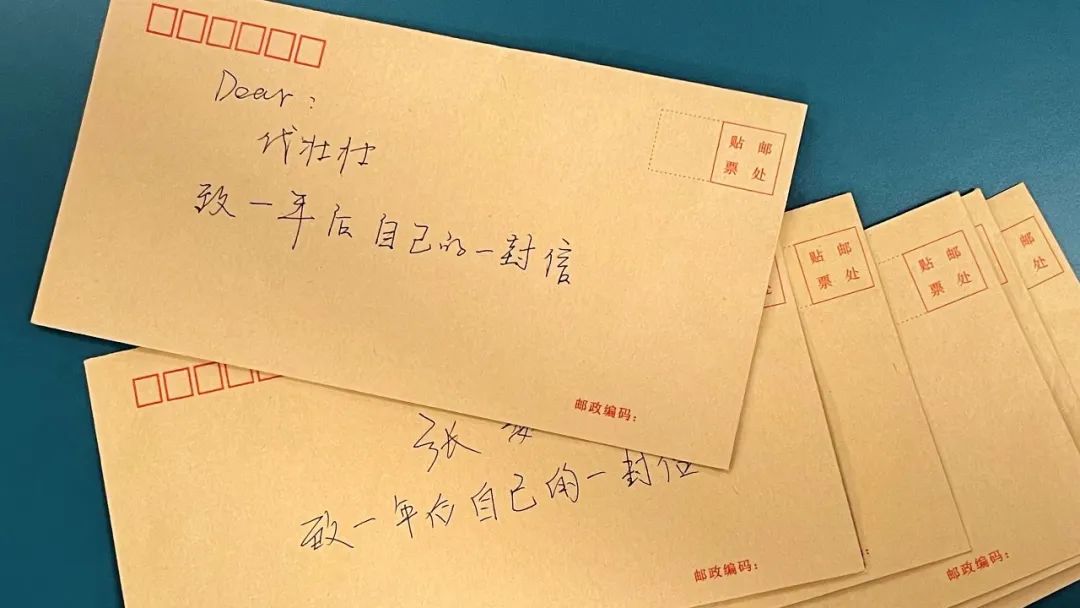 Dear:
代壮壮
致一年后自己的一封信
贴 邮
票 处
邮政编码:
张
致一年后自己的一封信
邮政编码:
处
贴 邮
票 处
贴 邮
票 处
邮政编码:
邮
处